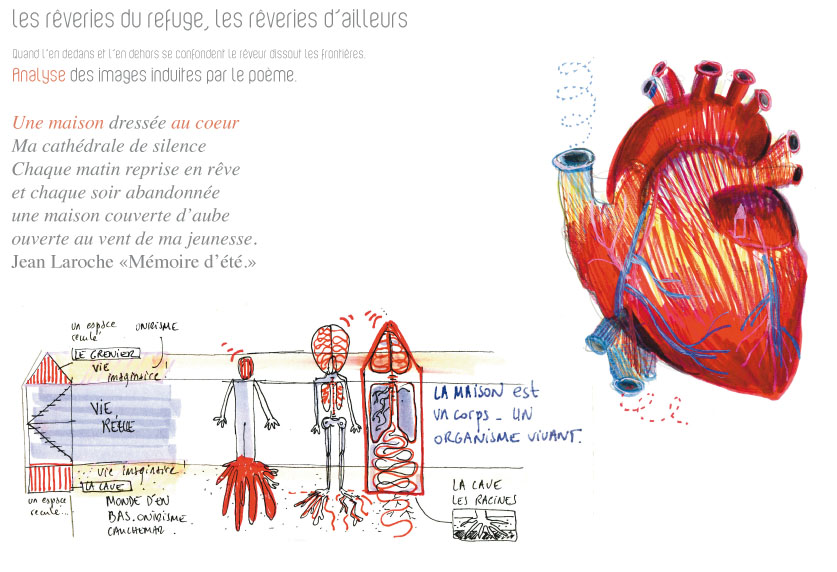 les rêveries du refuge, les rêveries d'ailleurs
Quand l'en dedans et l'en dehors se confondent le rêveur dissout les frontières.
Analyse des images induites par le poème.
Une maison dressée au coeur
Ma cathédrale de silence
Chaque matin reprise en rêve
et chaque soir abandonnée
une maison couverte d'aube
ouverte au vent de ma jeunesse.
Jean Laroche «Mémoire d'été.»
un espace
reculé
ONIRISME
LE GRENIER
VIE
imaginaire!
VIE
RÉELLE
vie imaginaire!
LA CAVE
un espace
reculé...
MONDE D'EN
BAS. ONIRISME.
CAUCHEMAR.
LA MAISON est
un corps _ UN
ORGANISME VIVANT.
LA CAVE
LES RACINES